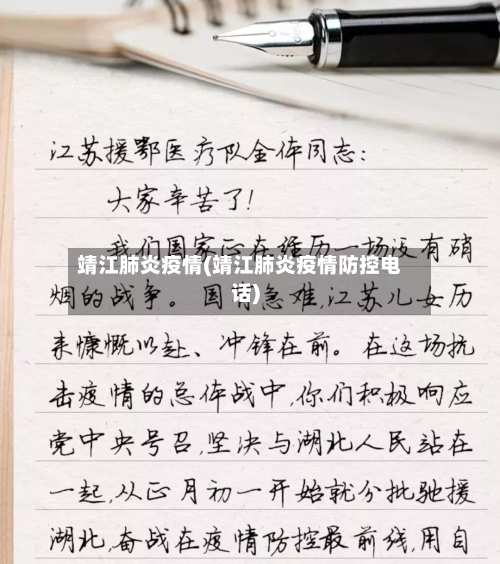 江苏援鄂医疗队全体同志:
大家辛苦了!
我们国家正在经历一场没有硝
靖江肺炎疫情(靖江肺炎疫情防控电
话)
烟的战争。国有急难,江苏儿女历
来慷慨以赴、冲锋在前。在这场抗
击疫情的总体战中,你们积极响应
党中央号召,坚决与湖北人民站在
一起,从正月初一开始就分批驰援
湖北,奋战在疫情防控最前线,用自